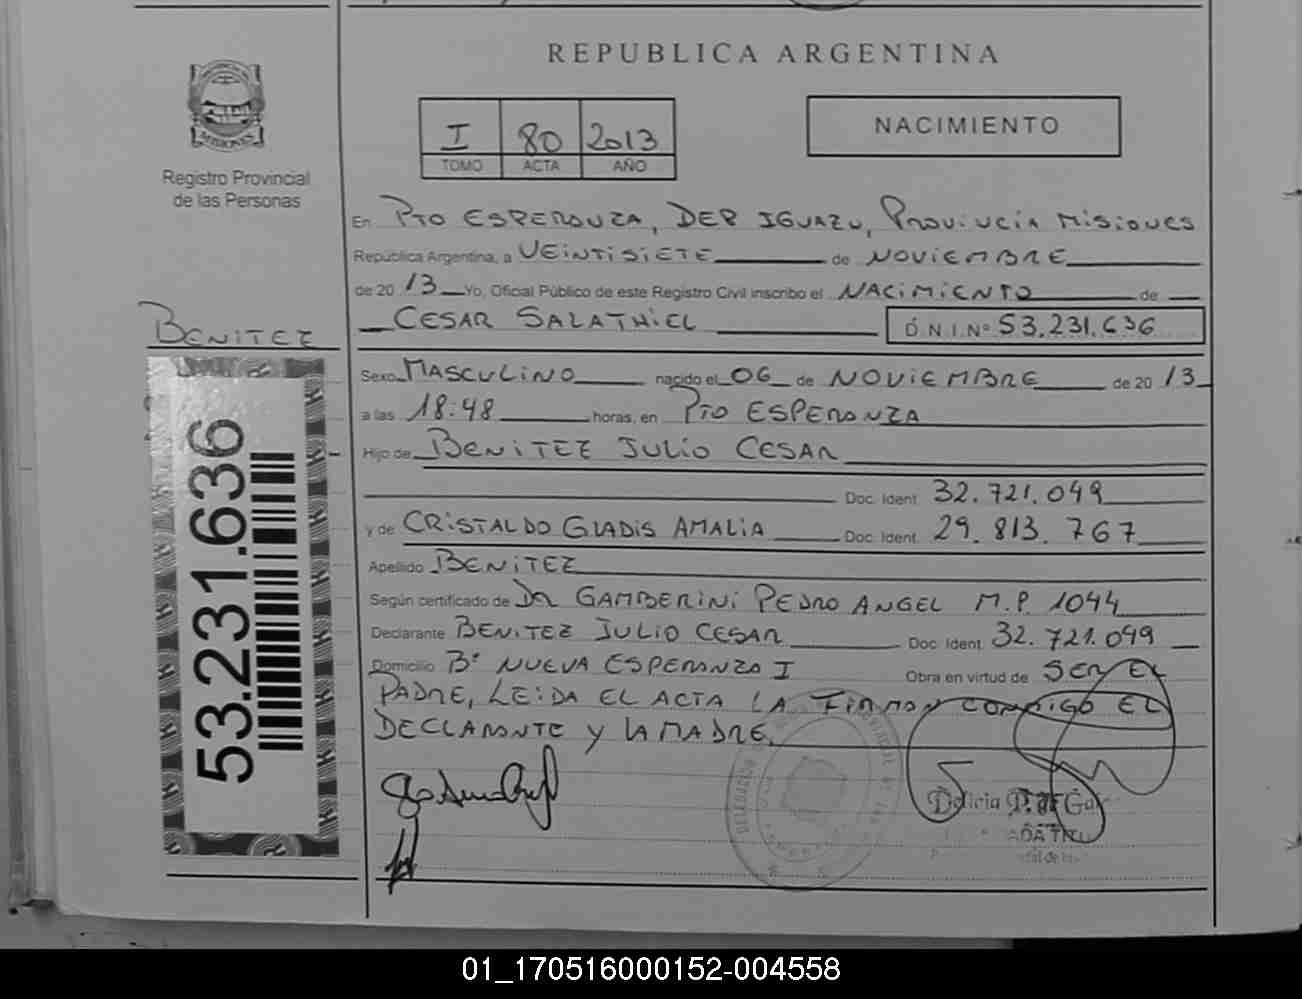 REPUBLICA ARGENTINA
I 80 2013
TOMO ACTA AÑO
NACIMIENTO
MISIONES
Registro Provincial
de las Personas
En PTO ESPERANZA, DEP IGUAZU, PROVINCIA MISIONES
República Argentina, a VEINTISIETE de NOVIEMBRE
de 20 13 Yo, Oficial Público de este Registro Civil inscribo el NACIMIENTO de
CESAR SALATHIEL D.N.I.Nº 53.231.636
BENITEZ
Sexo MASCULINO nacido el 06 de NOVIEMBRE de 20 13
a las 18:48 horas, en PTO ESPERANZA
Hijo de BENITEZ JULIO CESAR
Doc. Ident. 32.721.049
y de CRISTALDO GLADIS AMALIA Doc. Ident. 29.813.767
Apellido BENITEZ
Según certificado de DR GAMBERINI PEDRO ANGEL M.P. 1044
Declarante BENITEZ JULIO CESAR Doc. Ident. 32.721.049
Domicilio Bº NUEVA ESPERANZA I Obra en virtud de SER EL
PADRE, LEIDA EL ACTA LA FIRMAN CONMIGO EL
DECLARANTE Y LA MADRE.
53.231.636
Delicia
01_170516000152-004558